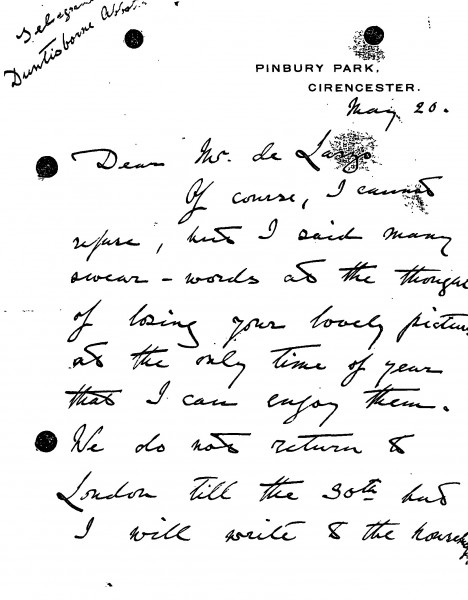 Telegrams
Duntisbourne Abbots
PINBURY PARK,
CIRENCESTER.
May 20.
Dear Mr. de Laszlo
Of course, I cannot
refuse, but I said many
swear-words at the thought
of losing your lovely pictures
at the only time of year
that I can enjoy them.
We do not return to
London till the 30th but
I will write to the